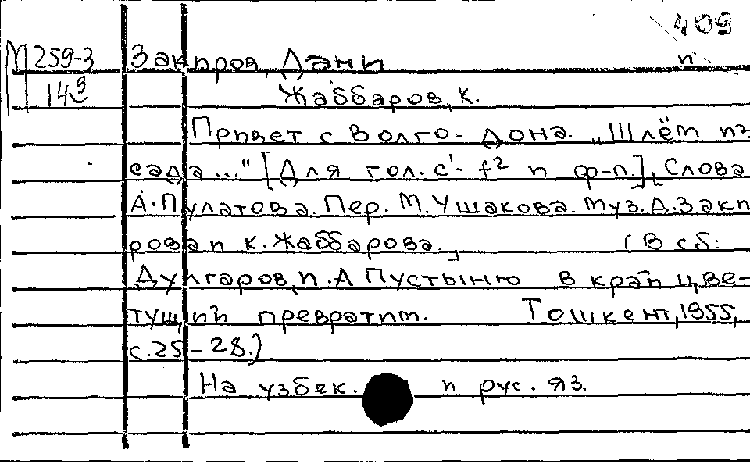 409
М 259-3 Закиров, Дани и
14 9 Жаббаров, К.
Привет с Волго-Дона. „Шлём из
сада..." [Для гол. с¹-f² и ф-п.], Слова
А. Пулатова. Пер. М. Ушакова. Муз. Д. Заки
рова и К. Жаббарова. (В сб:
Дулгаров, П. А Пустыню в край цве-
тущий превратим. Ташкент, 1955,
с. 25-28.)
На узбек. и рус. яз.